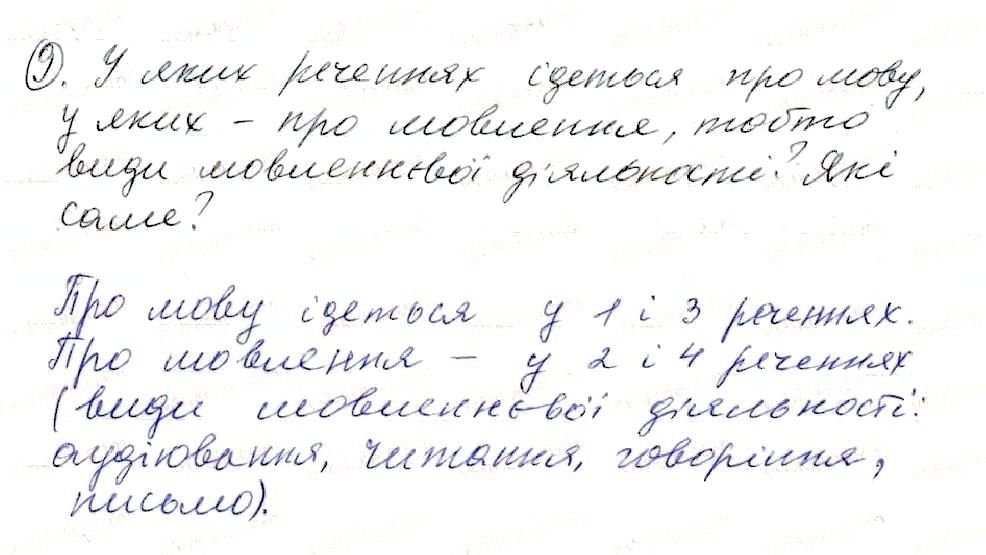 9. У яких реченнях ідеться про мову,
у яких – про мовлення, тобто
види мовленнєвої діяльності? Які
саме?
Про мову ідеться у 1 і 3 реченнях.
Про мовлення – у 2 і 4 реченнях
(види мовленнєвої діяльності:
аудіювання, читання, говоріння,
письмо).